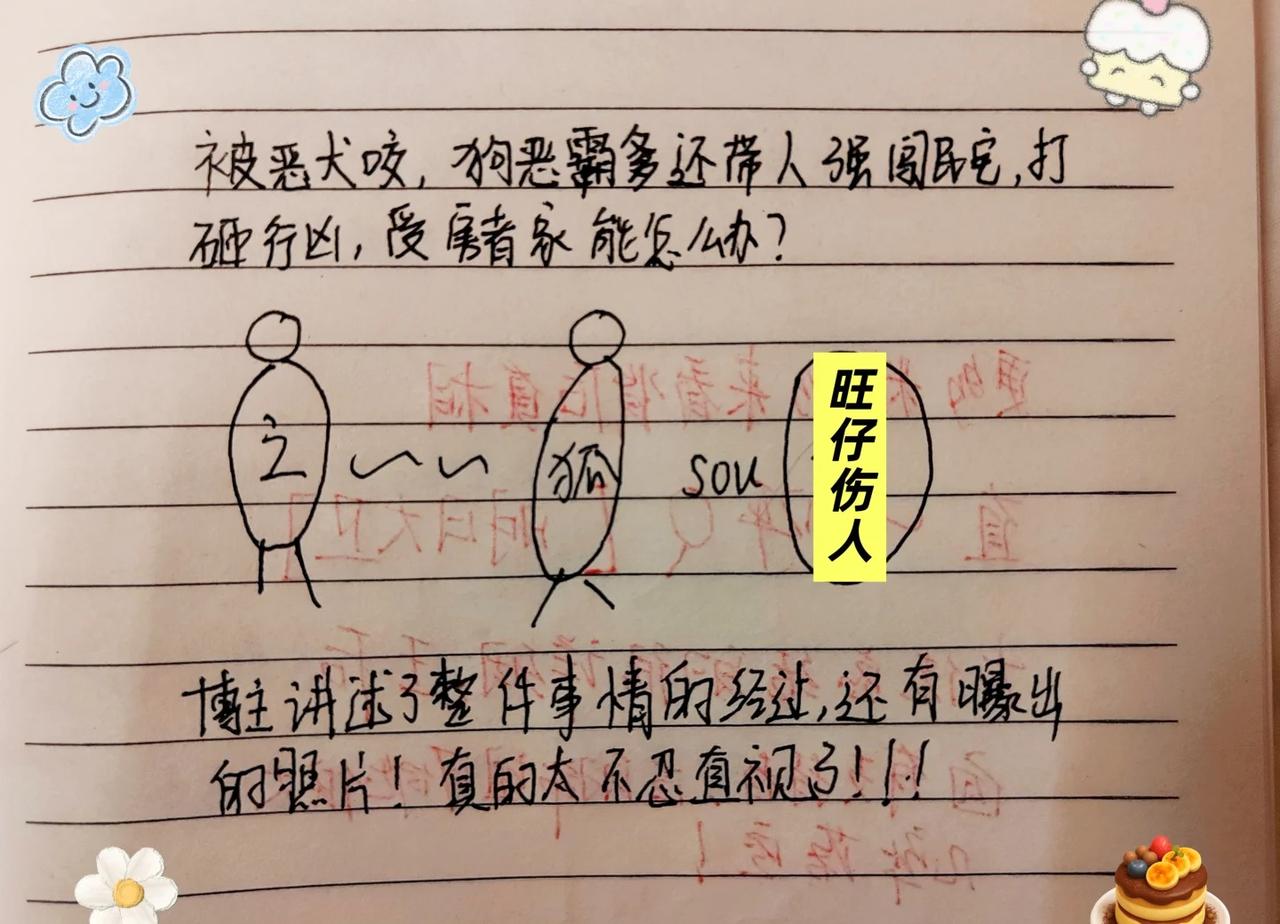 被恶犬咬，狗恶霸爹还带人强闯民宅，打
砸行凶，受害者家能怎么办？
之~~狐 sou 旺仔伤人
博主讲述了整件事情的经过，还有曝出
的照片！真的太不忍直视了！！！